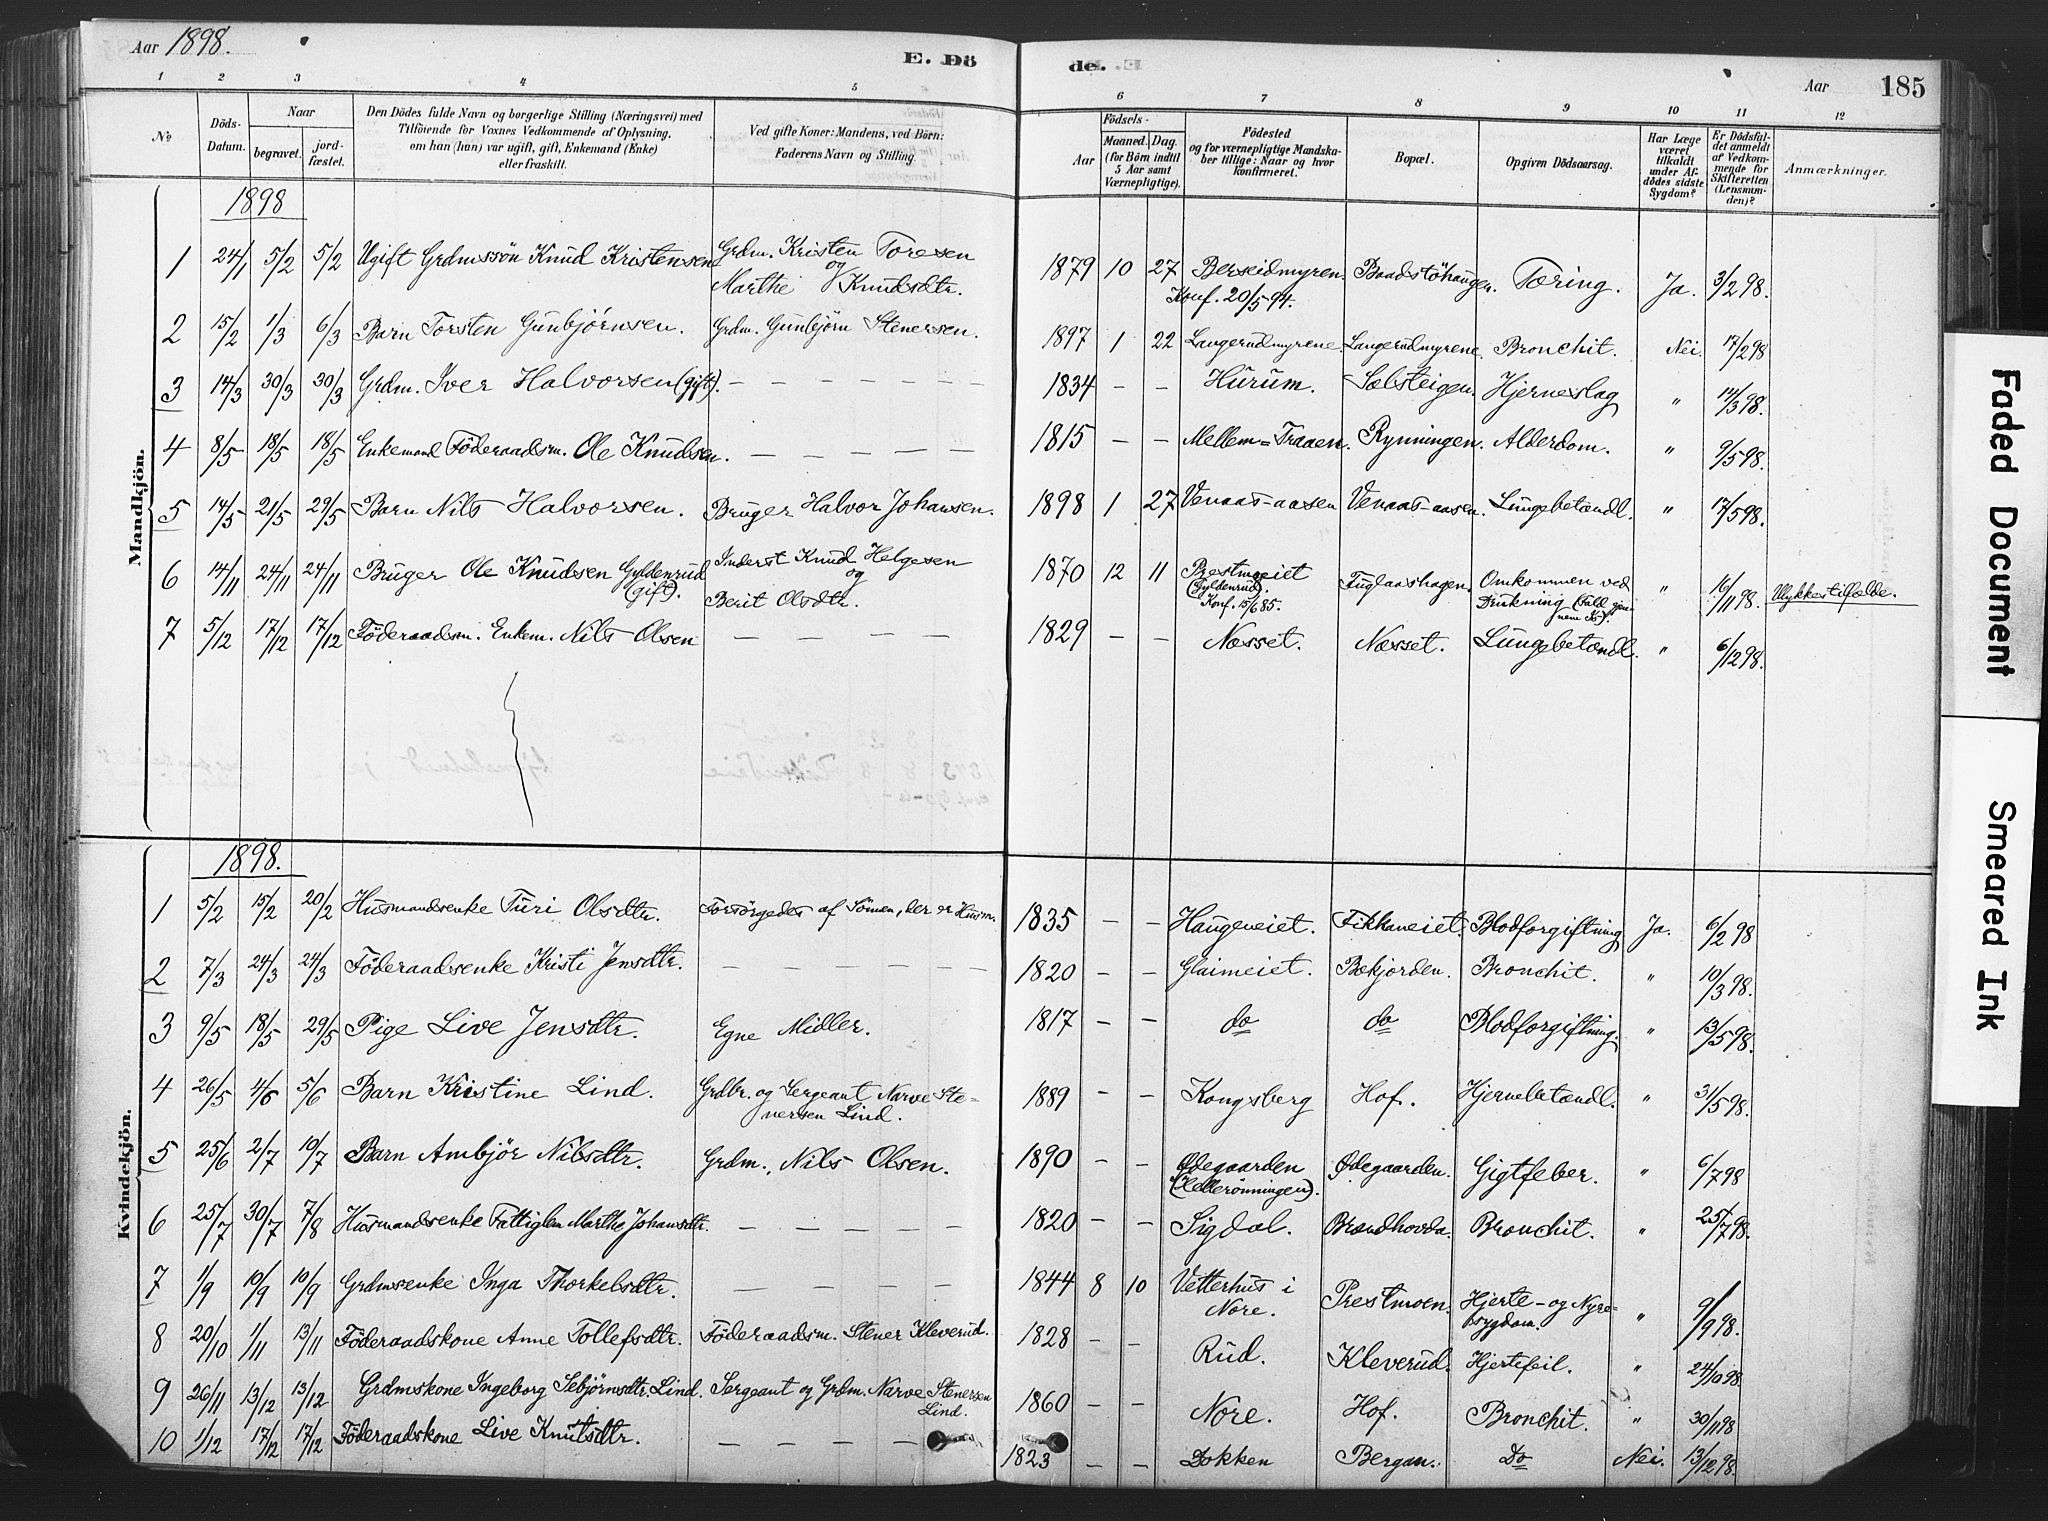 Aar 1898.
E. Dö
de.
Aar
185
1 2 3 4 5 6 7 8 9 10 11 12
No
Döds-Datum.
Naar
begravet.
jordfæstet.
Den Dödes fulde Navn og borgerlige Stilling (Næringsvei) med
Tilföiende for Voxnes Vedkommende af Oplysning,
om han (hun) var ugift, gift, Enkemand (Enke)
eller fraskilt.
Ved gifte Koner: Mandens, ved Börn:
Faderens Navn og Stilling.
Födsels-
Aar
Maaned. Dag.
(for Börn indtil
5 Aar samt
Værnepligtige).
Födested
og for værnepligtige Mandska-
ber tillige: Naar og hvor
konfirmeret.
Bopæl.
Opgiven Dödsaarsag.
Har Læge
været
tilkaldt
under Af-
dödes sidste
Sygdom?
Er Dödsfal-
det anmeldt
af Vedkom-
mende for
Skifteretten
(Lensman-
den)?
Anmærkninger.
Mandkjön.
1898
1 24/1 5/2 5/2 Ugift Grdmssön Knud Kristensen Grdm. Kristen Toresen og Marthe Knudsdtr. 1879 10 27 Berseidmyren. Konf. 20/5 94. Baadstöhaugen. Tæring. Ja. 3/2 98.
2 15/2 1/3 6/3 Barn Torsten Gunbjörnsen. Grdm. Gunbjörn Stenersen. 1897 1 22 Langerudmyrene. Langerudmyrene. Bronchit. Nei. 17/2 98
3 14/3 30/3 30/3 Grdm. Iver Halvorsen (gift). — — — — — — 1834 — — Hurum. Sælsteigen. Hjerneslag " 14/3 98.
4 8/5 18/5 18/5 Enkemand Föderaadsm. Ole Knudsen. — — — — — 1815 — — Mellem=Traaen. Rynningen. Alderdom. " 9/5 98.
5 14/5 21/5 29/5 Barn Nils Halvorsen. Bruger Halvor Johansen. 1898 1 27 Venaas-aasen Venaas-aasen. Lungebetændl. " 17/5 98.
6 14/11 24/11 24/11 Bruger Ole Knudsen Gyldenrud (gift). Inderst Knud Helgesen og Berit Olsdtr. 1870 12 11 Prestmoeiet (Gyldenrud). Konf. 15/6 85. Fuglaashagen. Omkommen ved Drukning (Fald gjennem Is). " 16/11 98. Ulykkestilfælde.
7 5/12 17/12 17/12 Föderaadsm. Enkem. Nils Olsen — — — — 1829 — — Næsset. Næsset. Lungebetændl. " 6/12 98.
Kvindekjön.
1898.
1 5/2 15/2 20/2 Husmandsenke Turi Olsdtr. Forsörgedes af Sönnen, der er Husm. 1835 — — Haugeneiet. Fikkaneiet. Blodforgiftning Ja. 6/2 98
2 7/3 24/3 24/3 Föderaadsenke Kristi Jensdtr. — — — — — — 1820 — — Glaimeiet. Bekjorden. Bronchit. " 10/3 98.
3 9/5 18/5 29/5 Pige Live Jensdtr. Egne Midler. 1817 — — do do Blodforgiftning. " 13/5 98.
4 26/5 4/6 5/6 Barn Kristine Lind. Grdbr. og Sergeant Narve Stenersen Lind. 1889 — — Kongsberg Hof. Hjernebetændl. " 31/5 98.
5 25/6 2/7 10/7 Barn Ambjör Nilsdtr. Grdm., Nils Olsen. 1890 — — Ødegaarden (Hellerönningen). Ødegaarden. Gigtfeber. " 6/7 98
6 25/7 30/7 7/8 Husmandsenke Fattiglem Marthe Johansdtr. — — — — — 1820 — — Sigdal. Brandhovda. Bronchit. " 25/7 98.
7 1/9 10/9 10/9 Grdmsenke Inga Thorkelsdtr. — — — — 1844 8 10 Vetterhus i Nore. Prestmoen. Hjerte- og Nyresygdom. " 9/9 98.
8 20/10 1/11 13/11 Föderaadskone Anne Tollefsdtr. Föderaadsm. Stener Kleverud. 1828 — — Rud. Kleverud. Hjertefeil. " 24/10 98.
9 26/11 13/12 13/12 Grdmskone Ingeborg Sebjörnsdtr. Lind. Sergeant og Grdm. Narve Stenersen Lind. 1860 — — Nore. Hof. Bronchit. " 30/11 98
10 1/12 17/12 17/12 Föderaadskone Live Knutsdtr. — — — — — 1823 — — Dokken Bergan. Do Nei. 13/12 98.
Faded Document
Smeared Ink